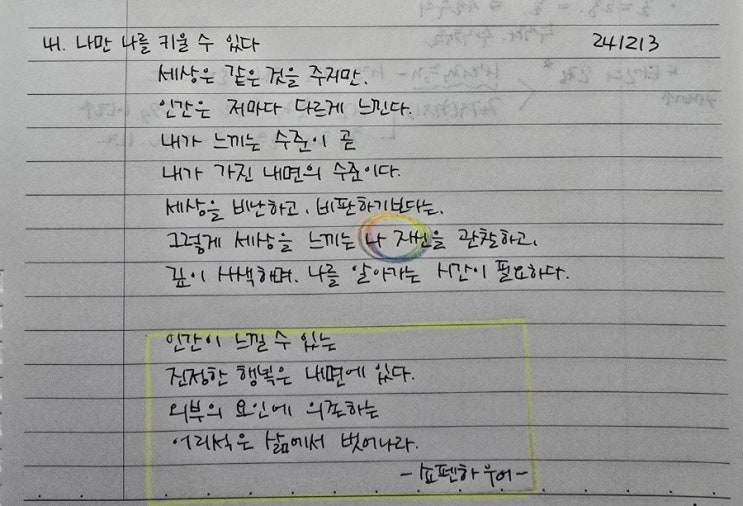 내. 나만 나를 키울 수 있다 241213
세상은 같은 것을 주지만,
인간은 저마다 다르게 느낀다.
내가 느끼는 수준이 곧
내가 가진 내면의 수준이다.
세상을 비난하고, 비판하기보다는,
그렇게 세상을 느끼는 나 자신을 관찰하고,
깊이 사색하며, 나를 알아가는 시간이 필요하다.
인간이 느낄 수 있는
진정한 행복은 내면에 있다.
외부의 요인에 의존하는
어리석은 삶에서 벗어나라.
-쇼펜하우어-